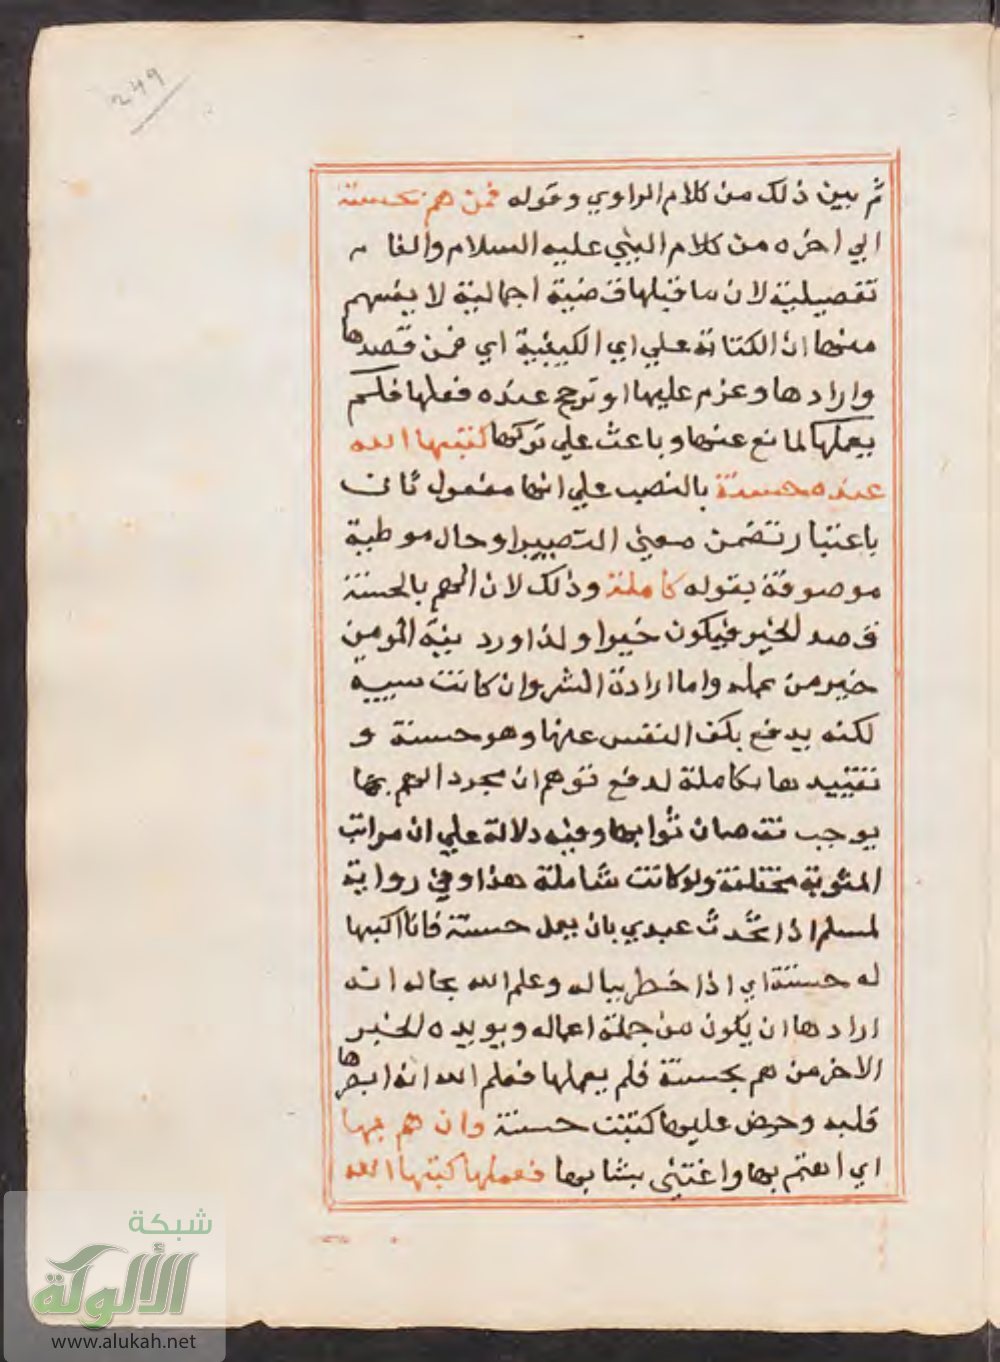 249
ثم بين ذلك من كلام الراوي وقوله فمن هم بحسنة
الي اخره من كلام النبي عليه السلام والفاء
تفصيلية لان ما قبلها قضية اجمالية لا يفهم
منها ان الكتابة علي اي الكيفية اي فمن قصدها
وارادها وعزم عليها او ترجح عنده فعلها فلم
يعملها لمانع عنها وباعث علي تركها كتبها الله
عنده حسنة بالنصب علي انها مفعول ثان
باعتبار تضمن معني التصيير او حال موطية
موصوفة بقوله كاملة وذلك لان الهم بالحسنة
قصد الخير فيكون خيرا ولذا ورد نية المومن
خير من عمله واما ارادة الشر وان كانت سيية
لكنه يدفع بكف النفس عنها وهو حسنة و
تقييدها بكاملة لدفع توهم ان مجرد الهم بها
يوجب نقصان ثوابها وفيه دلالة علي ان مراتب
المثوبة مختلفة ولو كانت شاملة هذا وفي رواية
لمسلم اذا تحدث عبدي بان يعمل حسنة فانا اكتبها
له حسنة اي اذا خطر بباله وعلم الله بحاله انه
ارادها ان يكون من جملة اعماله ويويده الخبر
الاخر من هم بحسنة فلم يعملها فعلم الله انه اشعرها
قلبه وحرص عليها كتبت حسنة وان هم بها
اي اهتم بها واعتني بشانها فعملها كتبها الله
شبكة
الألوكة
www.alukah.net